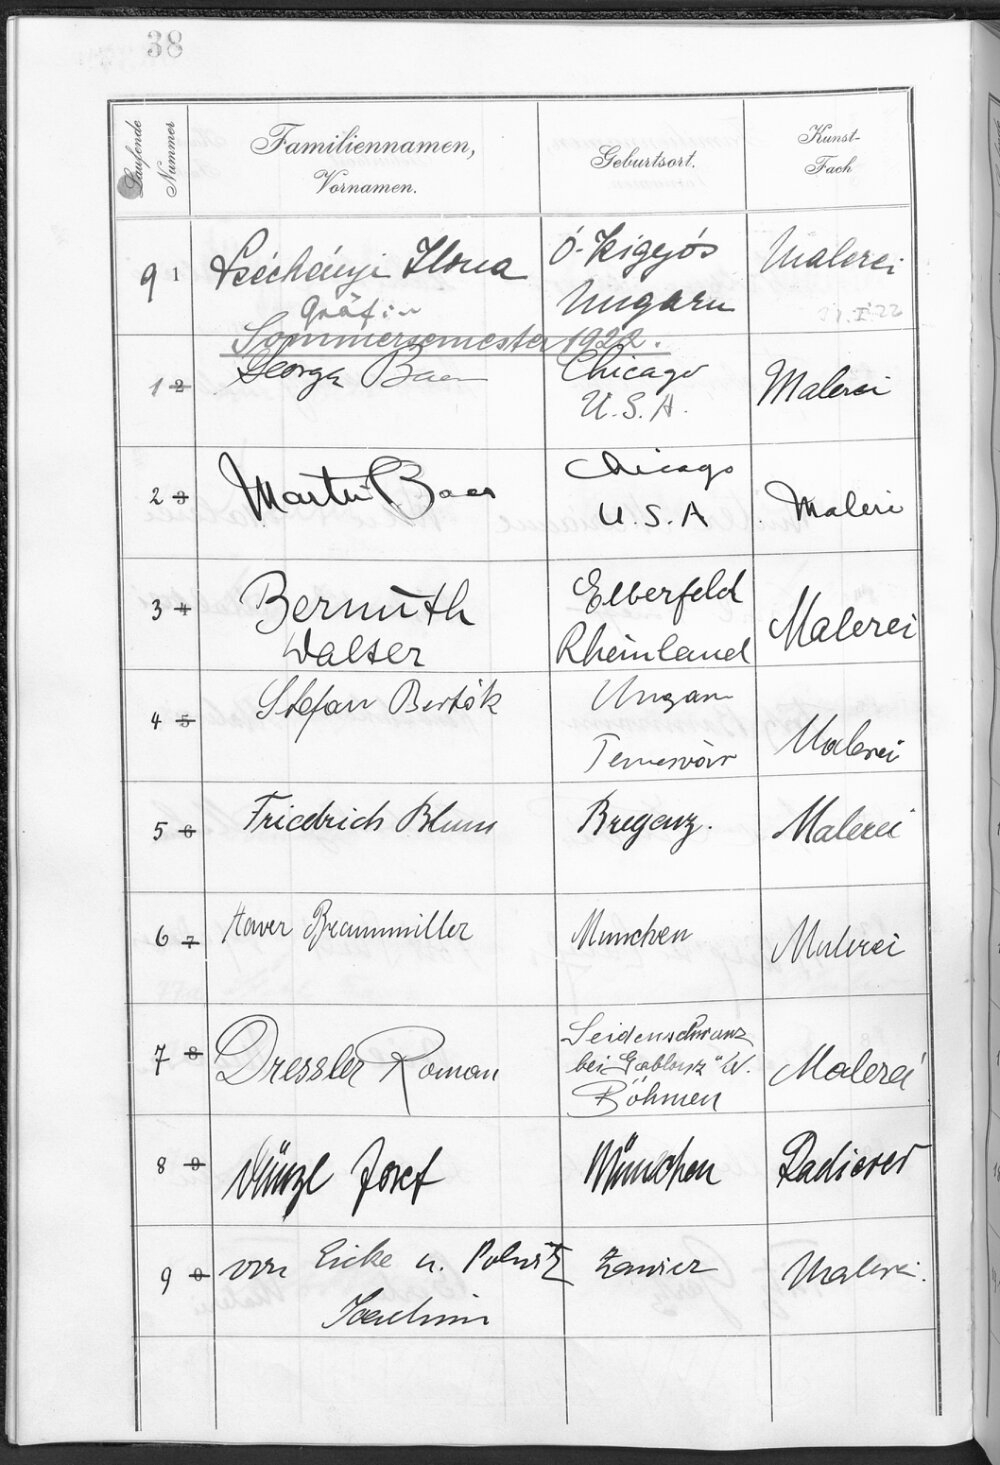 38
Laufende Nummer
Familiennamen,
Vornamen.
Geburtsort.
Kunst-
Fach
9 1 Széchényi Ilona Ó-Kigyós Malerei
Gräfin Ungarn
Sommersemester 1922.
1 2 George Baer Chicago Malerei
U.S.A.
2 3 Martin Baer Chicago Malerei
U.S.A
3 4 Bernuth Elberfeld Malerei
Walter Rheinland
4 5 Stefan Bertók Ungarn
Temesvár Malerei
5 6 Friedrich Blum Bregenz. Malerei
6 7 Xaver Braunmiller München Malerei
7 8 Dressler Roman Seidenschwanz Malerei
bei Gablonz
Böhmen
8 9 Münzl Josef München Radierer
9 von Eicke u. Polwitz Malerei.
Joachim